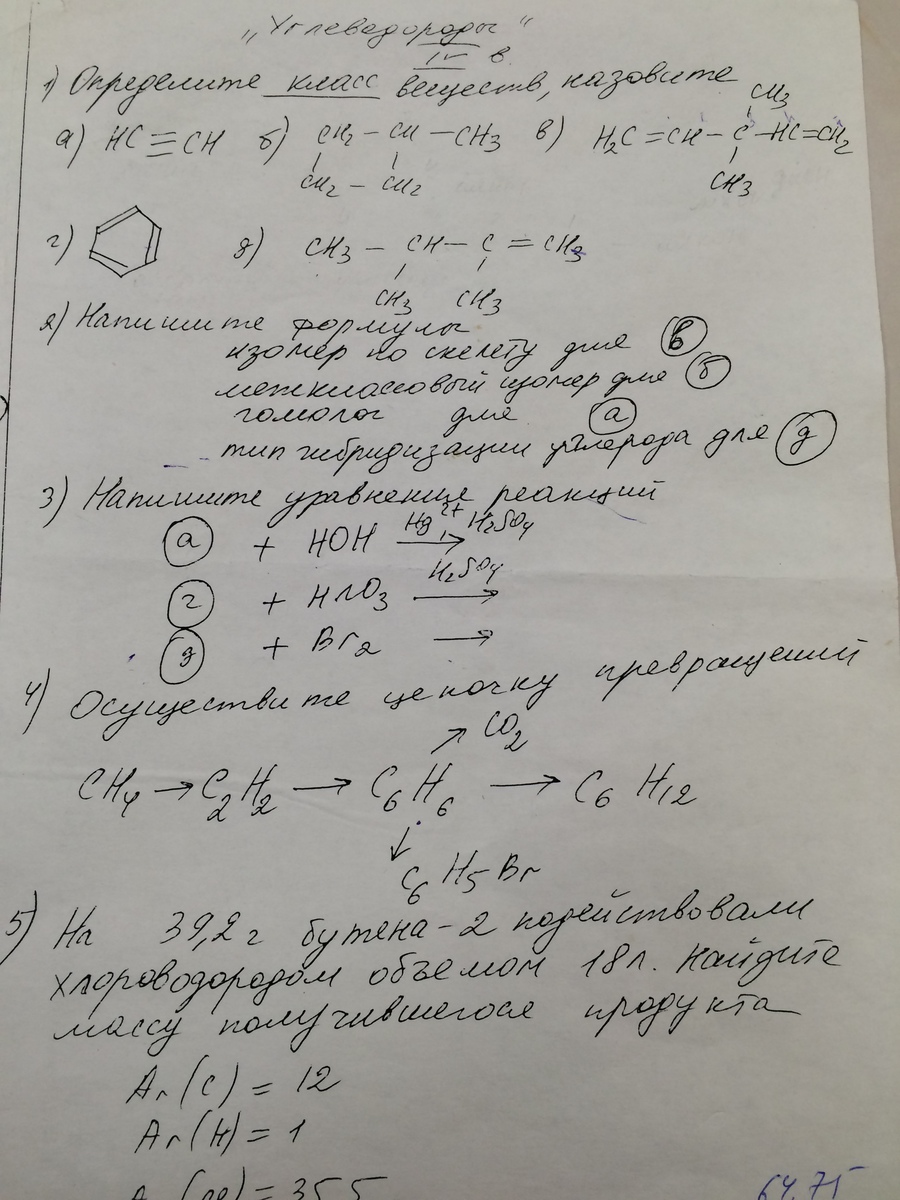 „Углеводороды“
IV в.
1) Определите класс веществ, назовите
а) HC≡CH б) CH2 – CH – CH3 в) H2C=CH–C–HC=CH2
CH3
CH2 – CH2 CH3
г) д) CH3 – CH – C = CH2
CH3 CH3
2) Напишите формулы
изомер по скелету для в
межклассовый изомер для б
гомолог для а
тип гибридизации углерода для д
3) Напишите уравнение реакций
а + HOH Hg2+, H2SO4 →
г + HNO3 H2SO4 →
д + Br2 →
4) Осуществите цепочку превращений
↗ CO2
CH4 → C2H2 → C6H6 → C6H12
↓
C6H5Br
5) На 39,2 г бутена-2 подействовали
хлороводородом объемом 18л. Найдите
массу получившегося продукта
Ar(C) = 12
Ar(H) = 1
Ar(Cl) = 35,5
64,75